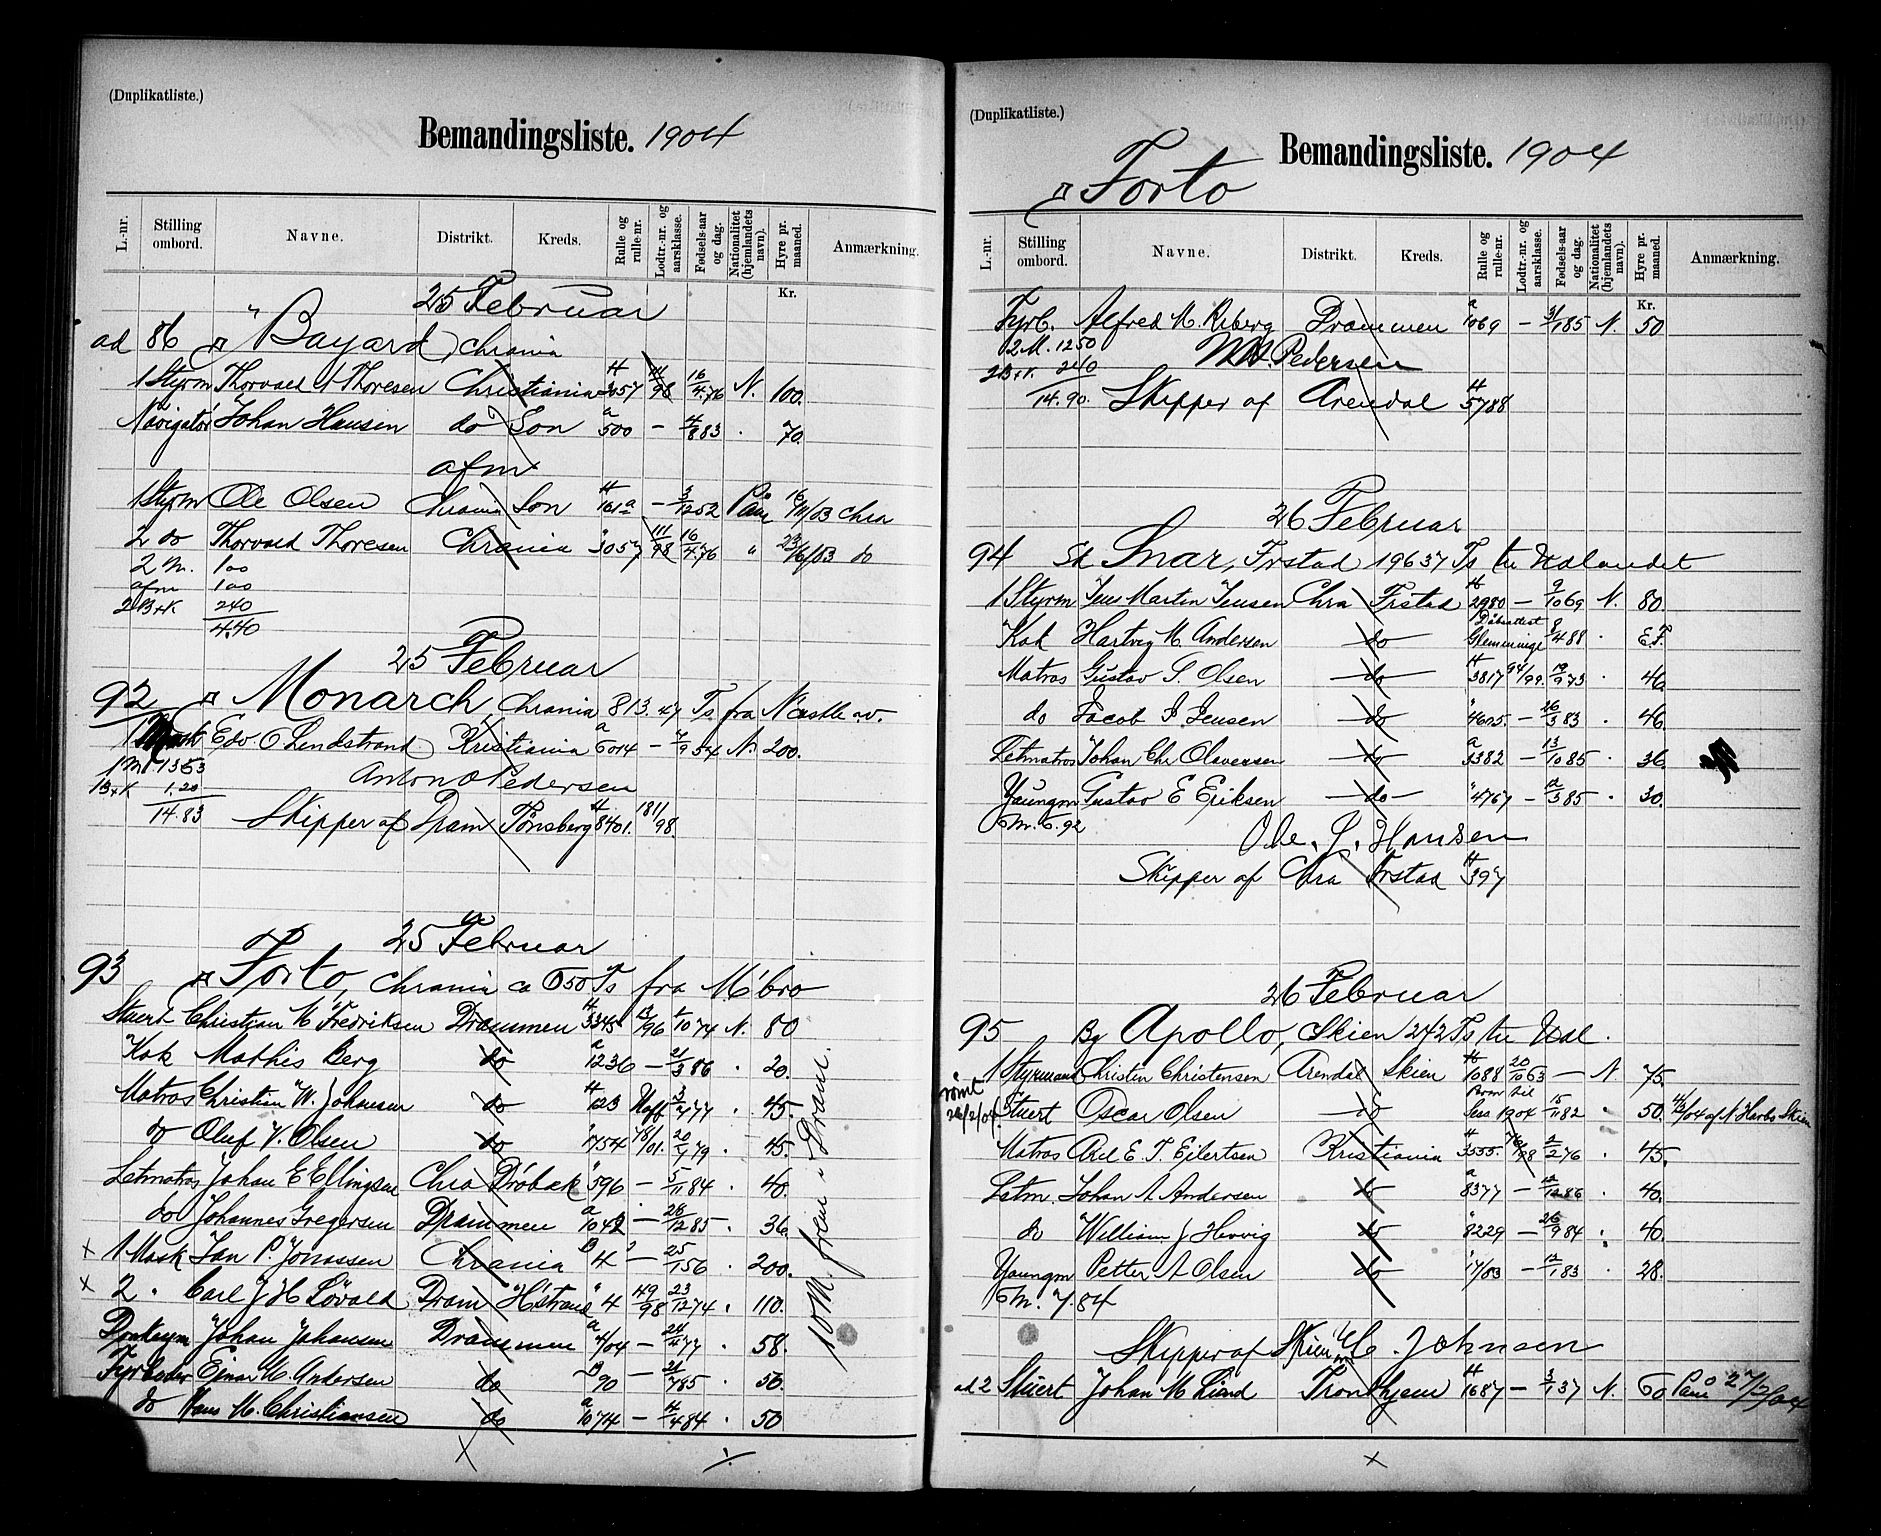 (Duplikatliste.)
Bemandingsliste. 1904
L.-nr. Stilling ombord. Navne. Distrikt. Kreds. Rulle og rulle-nr. Lodtr.-nr. og aarsklasse. Fødsels-aar og dag. Nationalitet (hjemlandets navn). Hyre pr. maaned. Anmærkning.
Kr.
25 Februar
ad 86 Bayard, Chrania
1 Styrm Thorvald A Thoresen Christiania H 3057 111/98 16/4.76 N. 100.
Navigatør Johan Hansen do Son a 500 — 4/8 83 . 70.
afm
1 Styrm Ole Olsen Chrania Son H 161a — 3/12 52 Paam 16/11/03 Chra
2 do Thorvald Thoresen Chrania " 3057 111/98 16/4.76 " 23/6/03 do
2 M. 100
afm 100
2 B+K 240
4.40
25 Februar
92 Monarch Chrania 813.47 Ts fra N Castle
1 Mask Edv O Lindstrand Kristiania a 6014 — 7/9 54 N. 200.
1 M. 1363
1 B+K 1.20
14.83
Anton O Pedersen
Skipper af Dram Tønsberg H 8401. 181/98.
25 Februar
93 Torto, Chrania ca 650 Ts fra M'bro
Stuert Christian M Fredriksen Drammen H 3345 13/96 1/10 74 N. 80
Kok Mathis Berg do a 1236 — 21/3 86 . 20.
Matros Christian W. Johansen do H 123 3/7 77 . 45.
do Oluf V. Olsen do " 1754 78/01. 20/7 79 . 45.
Letmatros Johan E Ellingsen Chra Drøbak " 596 — 5/11 84 . 40.
do Johannes Gregersen Drammen a 1042 — 28/12 85 . 36
x 1 Mask Jan P. Jonassen Chrania B 4 — 25/1 56 . 200.
x 2 . Carl J H Løvald Dram H'strand " 4 49/98 23/12 74 . 110.
Donkeym Johan Johansen Drammen a 4/04 — 24/4 77 . 58.
Fyrbøder Ejnar M. Andersen do B 90 — 21/7 85 . 50.
do Hans M. Christiansen do a 1074 — 4/4 84 . 50
10 M. frem i Dram.
(Duplikatliste.)
Bemandingsliste. 1904
Torto
L.-nr. Stilling ombord. Navne. Distrikt. Kreds. Rulle og rulle-nr. Lodtr.-nr. og aarsklasse. Fødsels-aar og dag. Nationalitet (hjemlandets navn). Hyre pr. maaned. Anmærkning.
Kr.
Fyrb. Alfred M. Riberg Drammen a 1069 — 31/1 85 N. 50
2 M. 1250
2 B+K. 240
14.90.
Pedersen
Skipper af Arendal H 5788
26 Februar
94 Sk Snar, Frstad 19637 Ts til Udlandet
1 Styrm Jens Martin Jensen Chra Frstad H 2980 — 9/10 69 N. 80
Kok Hartvig M. Andersen do Dåbsattest Glemminge 8/4 88 . E.F.
Matros Gustav S. Olsen do H 3817 94/99. 19/9 73 . 46
do Jacob J. Jensen do " 4605 — 26/3 83 . 46
Letmatros Johan Chr Olavesen do a 3382 — 13/10 85 . 36
Youngm Gustav E Eriksen do " 4767 — 12/3 85 . 30.
6 M. 6.92
Ole. J. Hansen
Skipper af Chra Frstad H 397
26 Februar
95 Bg Apollo, Skien 242 Ts til Udl.
1 Styrmand Christen Christensen Arendal Skien H 1088 20/10 63 — N. 75.
rømt 26/2/04. Stuert Oscar Olsen do 1904 — 15/11 82 . 50.
Matros Axel E. T. Eilertsen Kristiania H 3555. 76/98 2/2 76 . 45.
Letm. Johan A Andersen do a 8377 — 12/12 86 . 40.
do William J Hervig do " 8229 — 26/9 84 . 40.
Youngm Petter A Olsen do 17/03 — 12/1 83 . 28.
6 M. 7.84
Skipper af Skien Johnsen
ad 2 Stuert Johan M Lund Trondhjem H 1687 — 3/1 37 N. 60 Paam 27/2/04